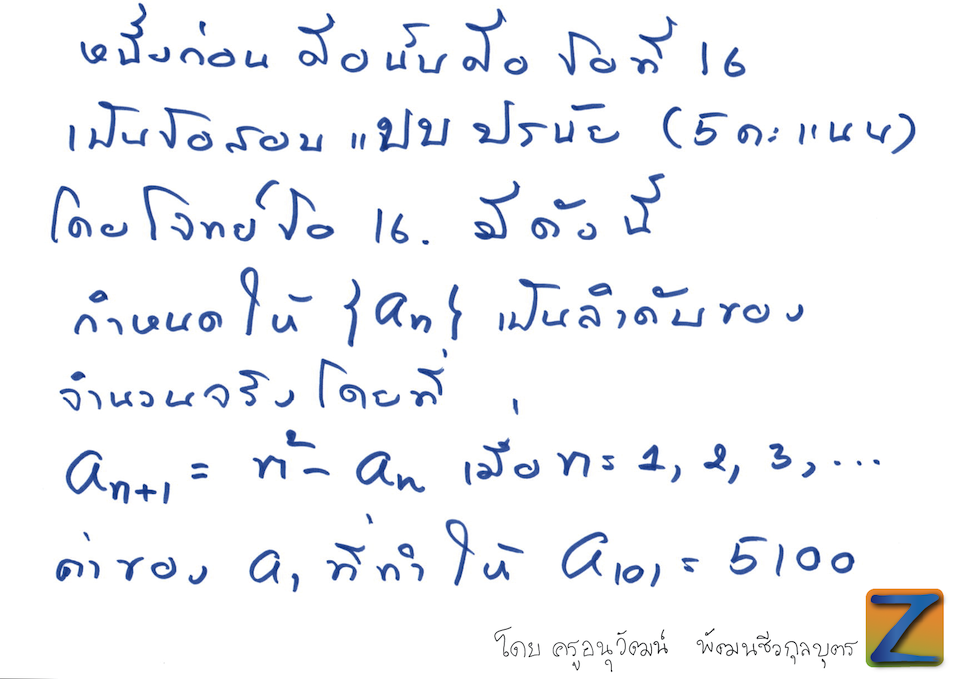 หนึ่งก่อน คือนั่นคือ ข้อที่ 16
เป็นข้อสอบ แบบ ปรนัย (5 คะแนน)
โดยโจทย์ข้อ 16. มีดังนี้
กำหนดให้ {aₙ} เป็นลำดับของ
จำนวนจริงโดยที่
aₙ₊₁ = n² - aₙ เมื่อ n = 1, 2, 3, ...
ค่าของ a₁ ที่ทำให้ a₁₀₁ = 5100
โดย ครูอนุวัฒน์ พัฒนชีวกุลบุตร
Z